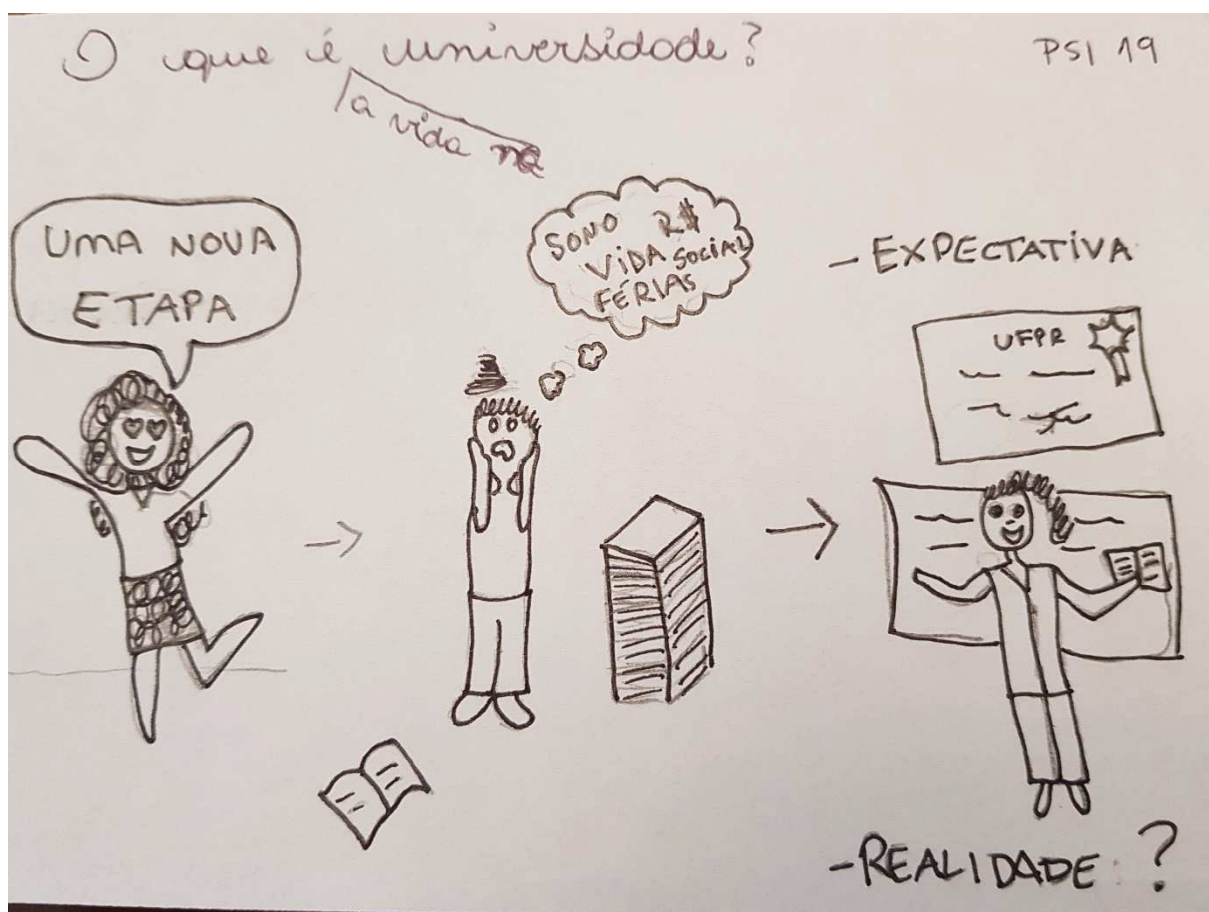 O que é universidade?
PSI 19
a vida na
UMA NOVA
ETAPA
SONO R$
VIDA SOCIAL
FÉRIAS
- EXPECTATIVA
UFPR
- REALIDADE: ?